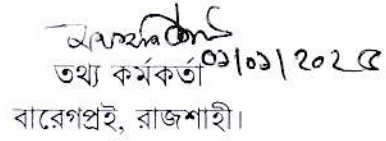 তথ্য কর্মকর্তা ০১/০১/২০২৫
বারেগপ্রই, রাজশাহী।